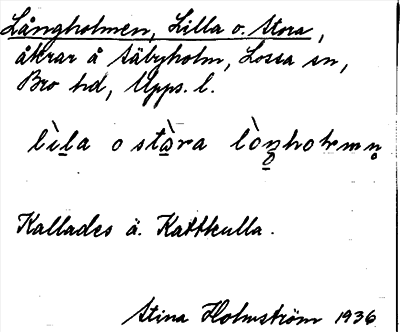 Långholmen, Lilla o. Stora,
åkrar å Säbyholm, Lossa sn,
Bro hd, Upps. l.
lìla o stàra lòŋholmn̥
Kallades ä. Kattkulla.
Stina Holmström 1936